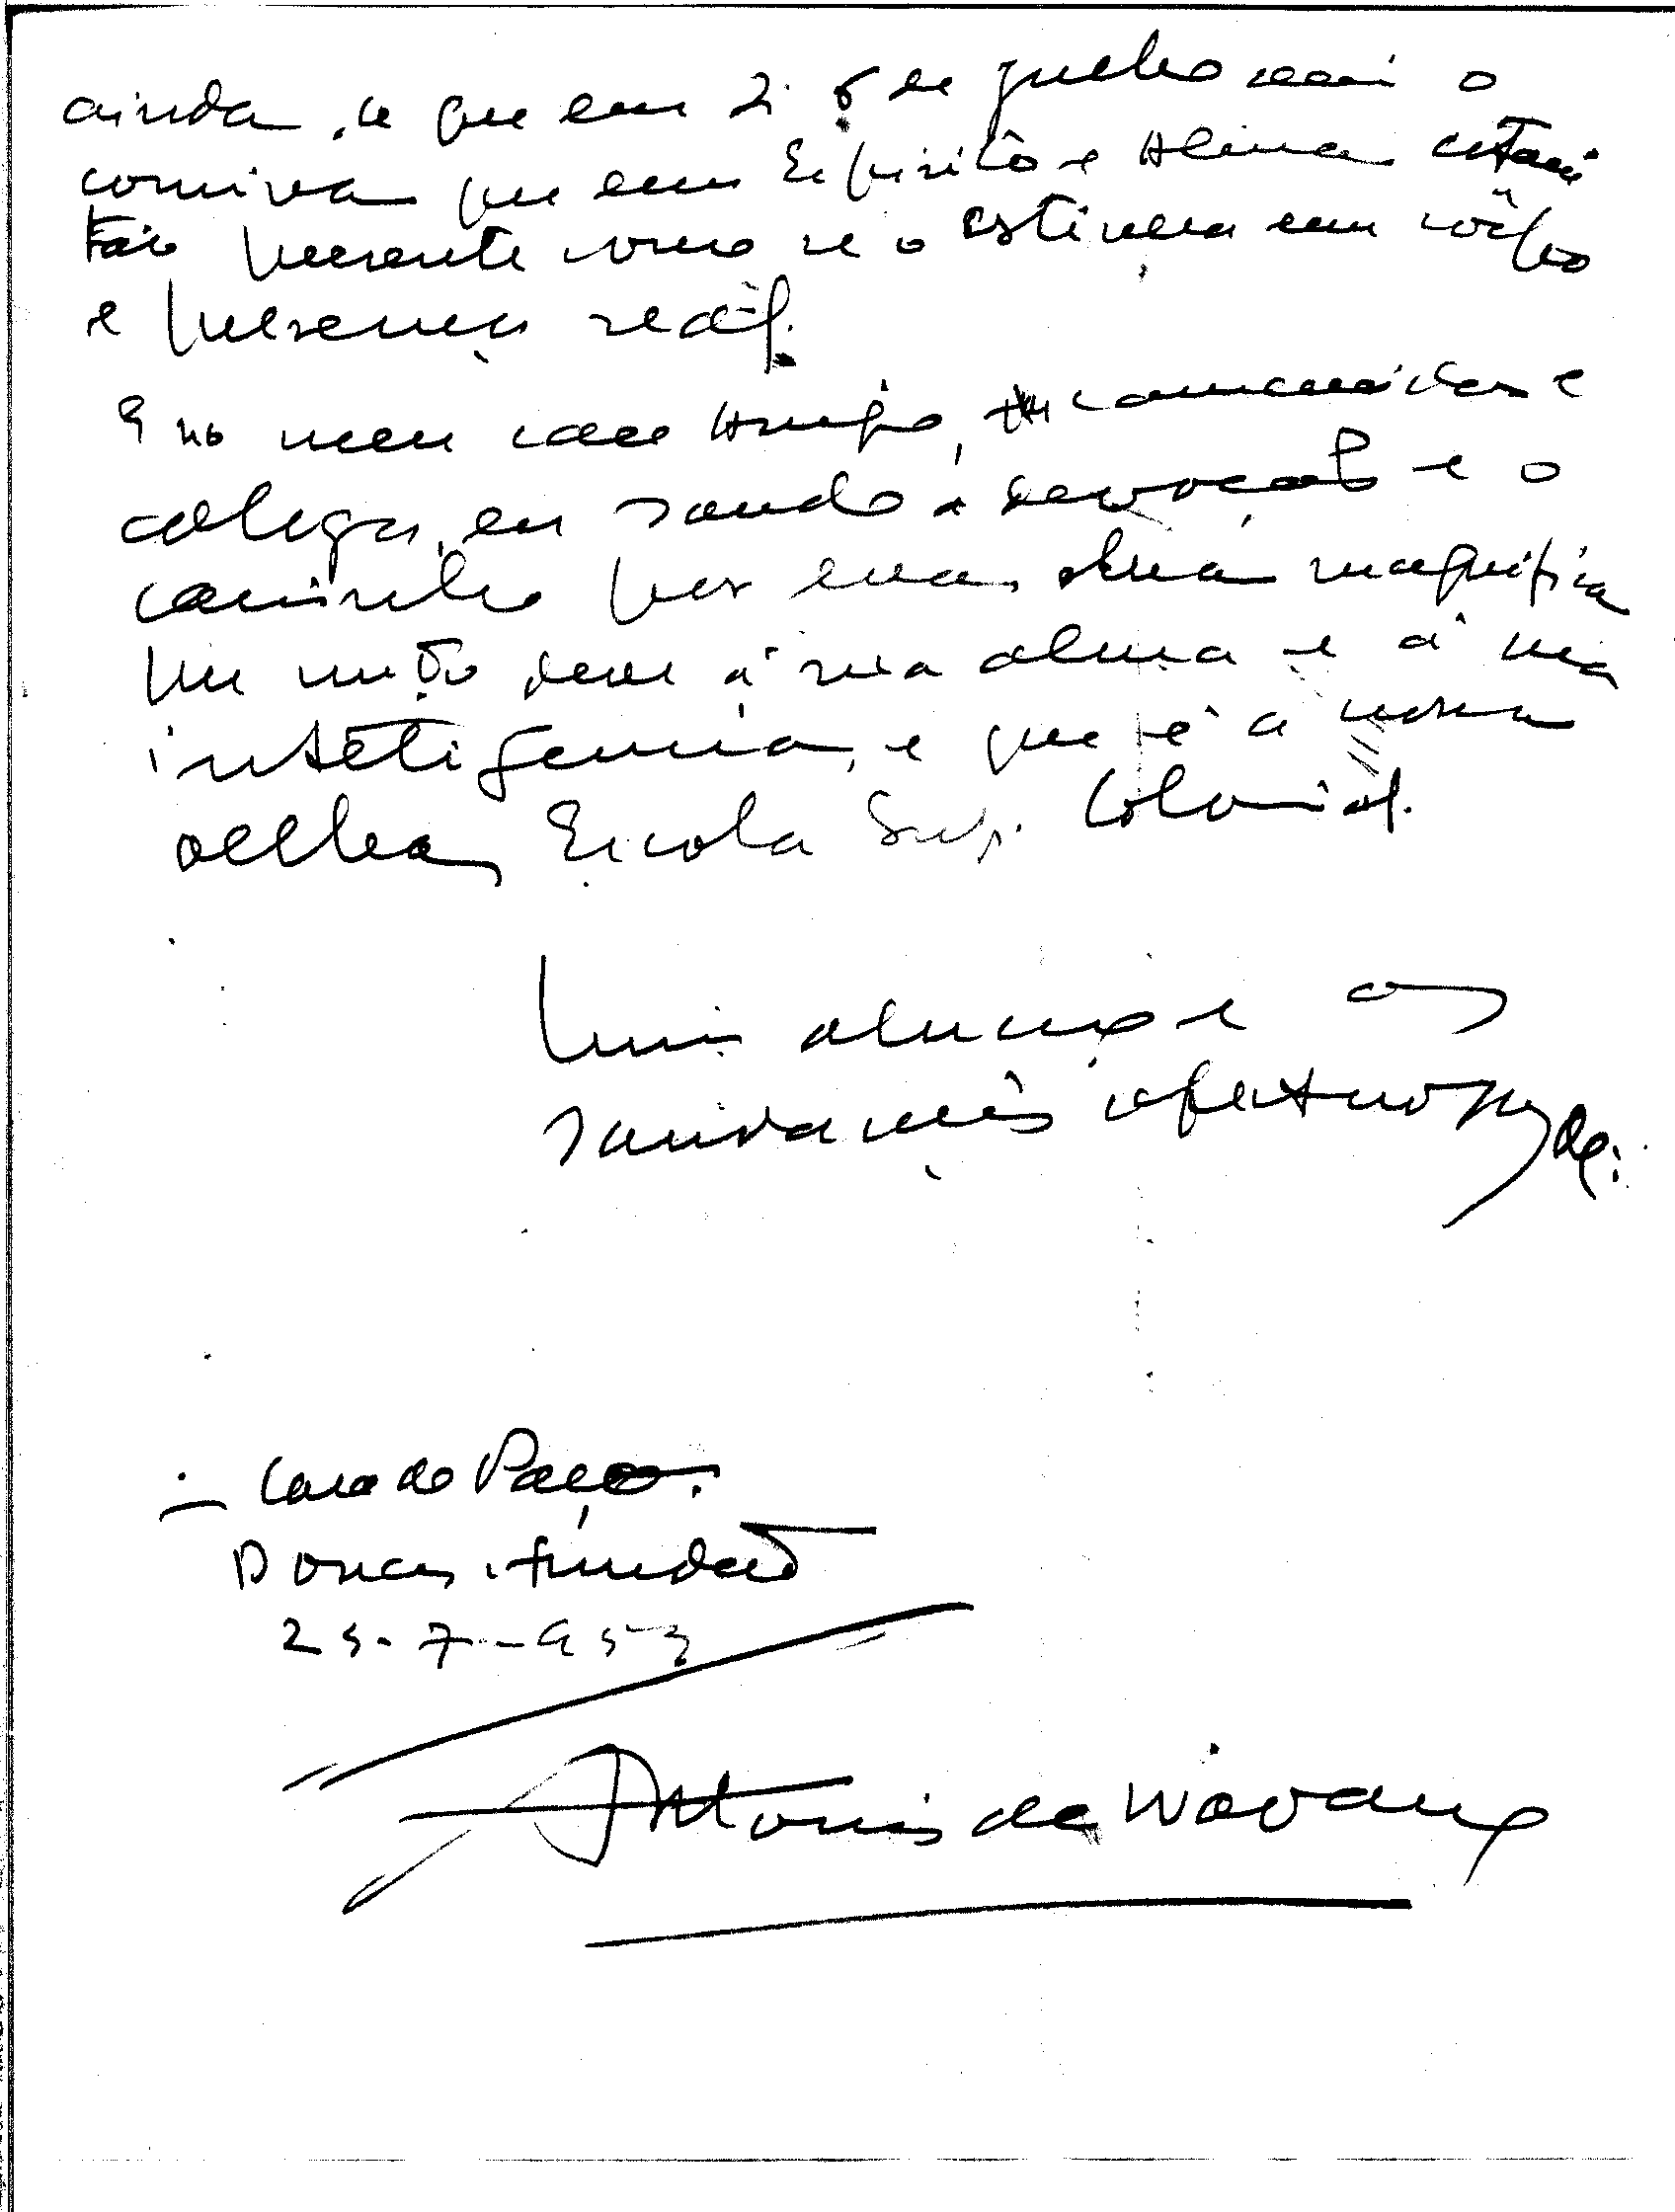 ainda, que em 2 de julho o
conviva que em Espirito e Alma estará
tão presente como se o estivera em corpo
e presença real.
E no meu caro Amigo, camarada e
colega, eu saúdo a devoção e o
carinho por essa obra magnifica
que muito deve á sua alma e á sua
inteligencia, e que é a nossa
velha Escola Sup. Colonial.
Um abraço e as
saudações afectuosas de:
Casa do Paço.
Dornas. Trindade
25-7-953
Antonio de Navarro